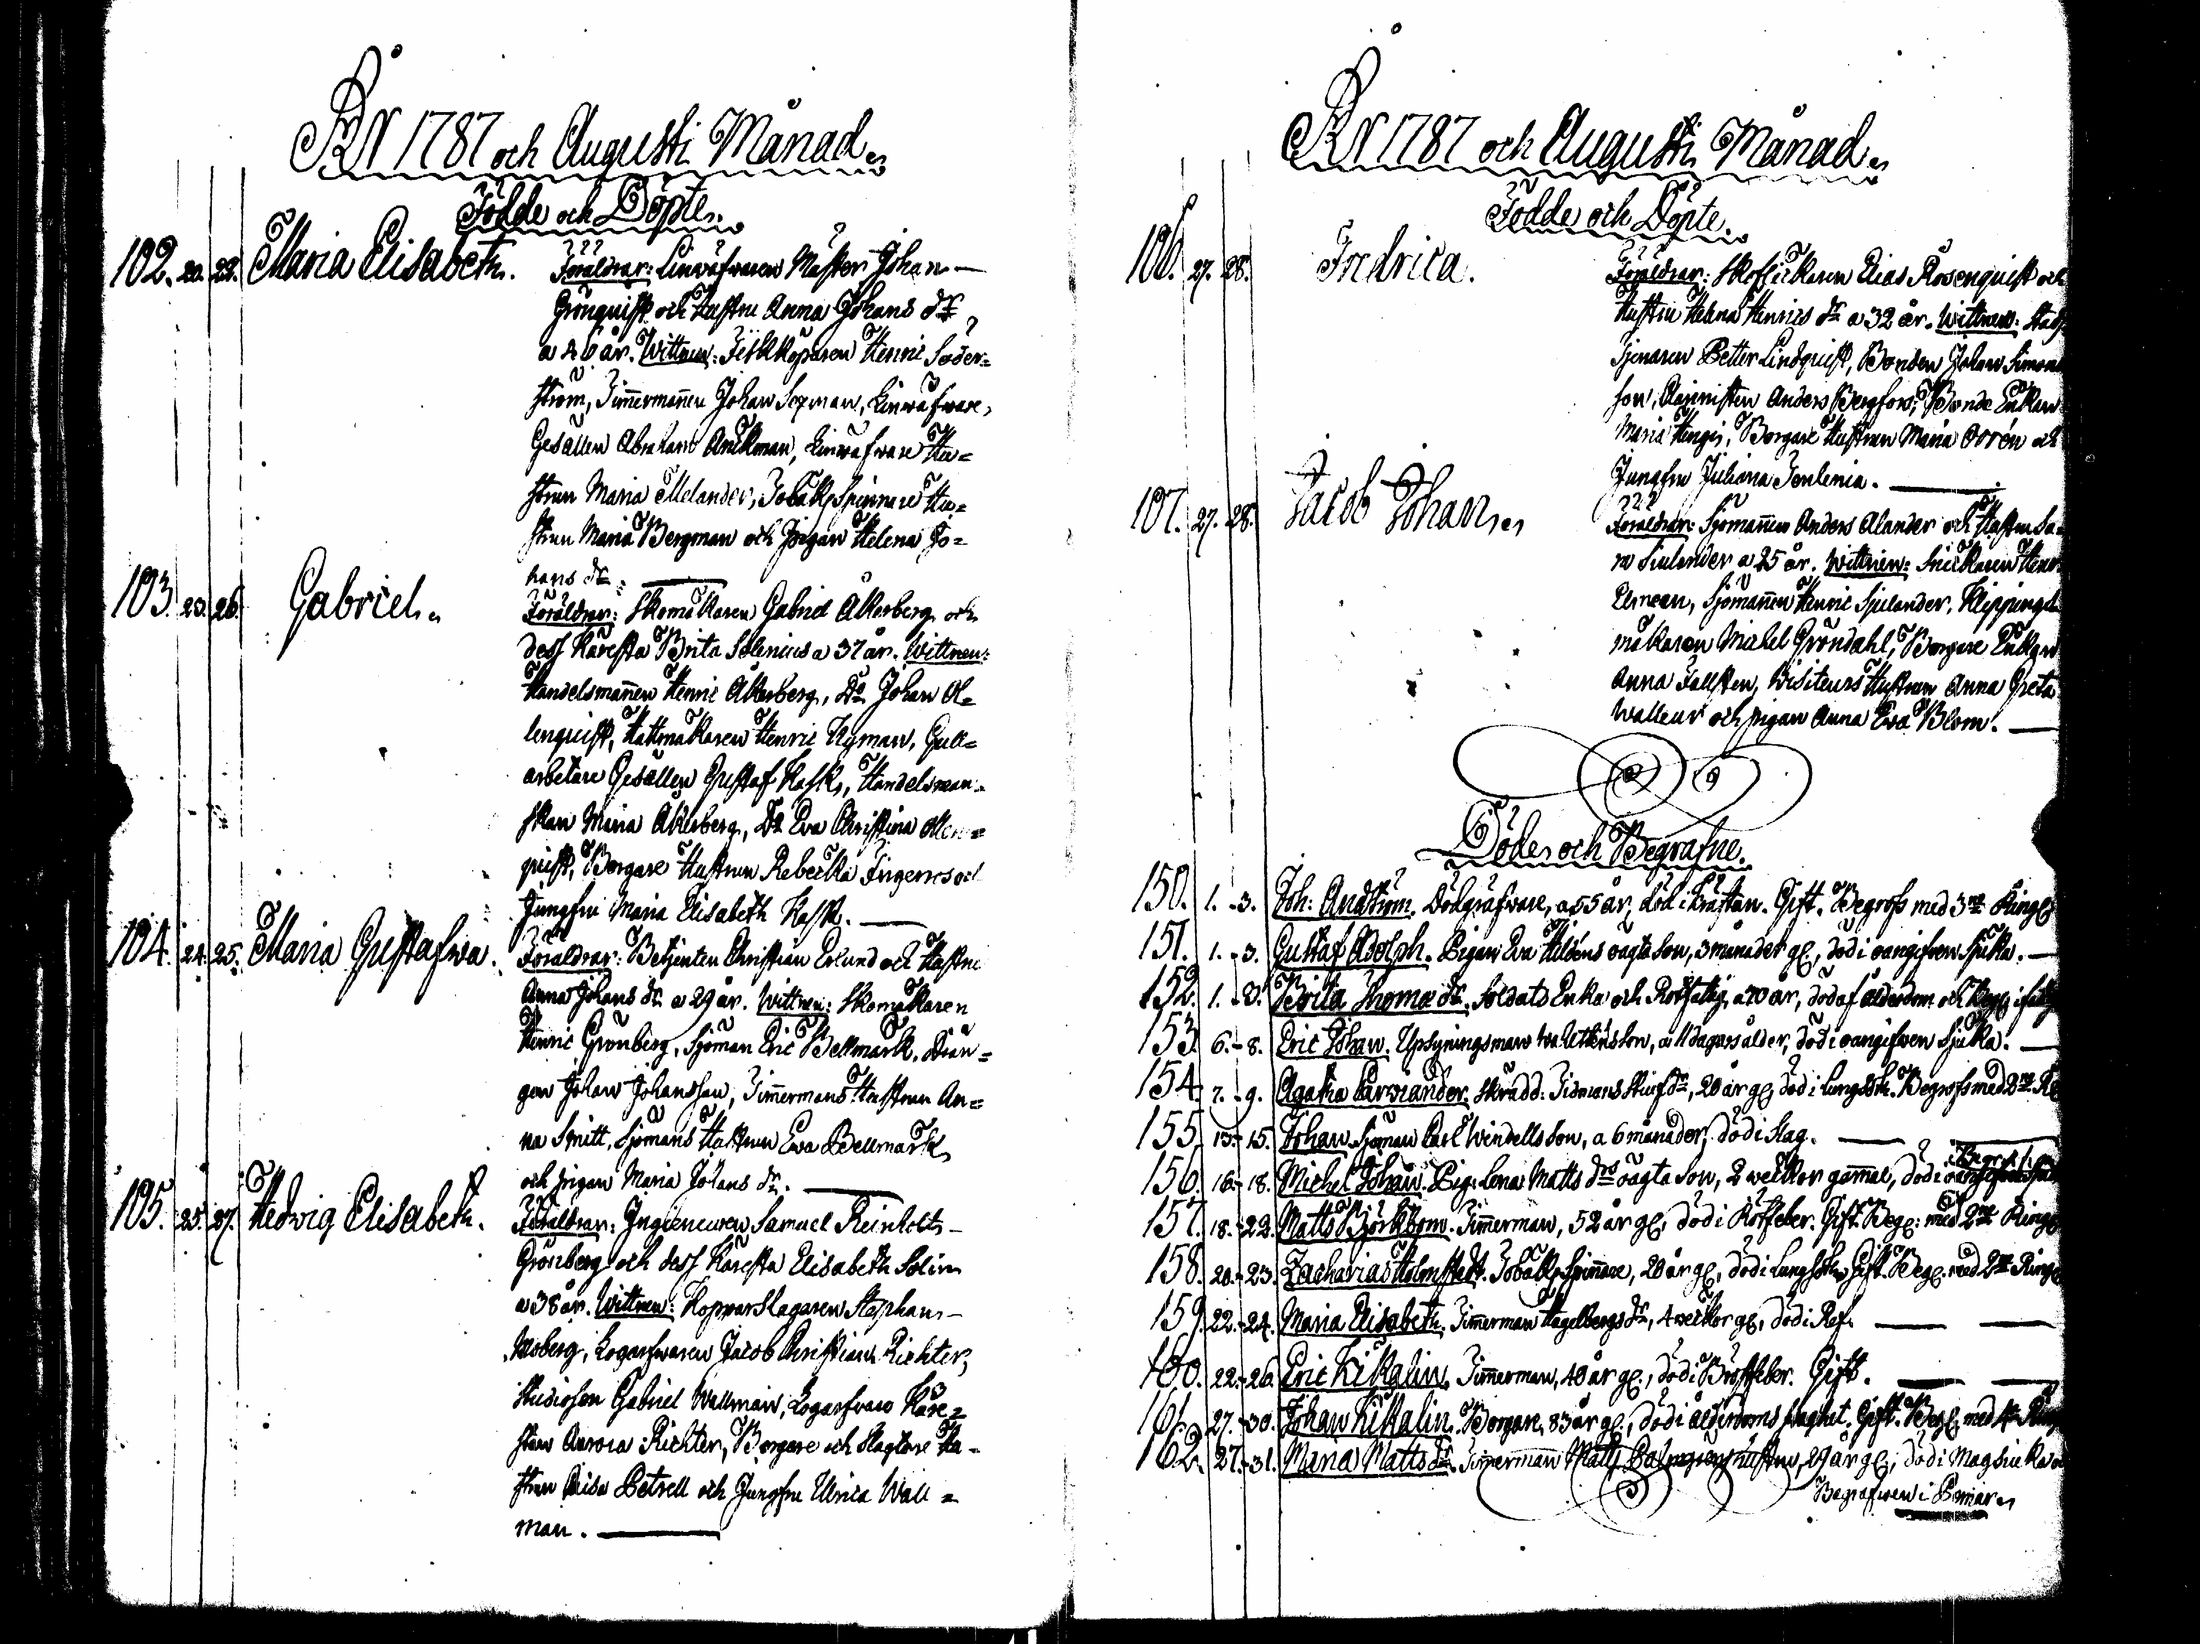 År 1787 och Augusti Månad.
Födde och Döpte.
102. 20. 22. Maria Elisabeth. Föräldrar: Linwäfwaren Mäster Johan
Grönquist och Hustru Anna Johans dr
a 40 år. Wittnen: Fiskköparen Henric Söder=
ström, Timmermannen Johan Sexman, Linwäfware,
Gesällen Abraham Anckman, Linwäfware Hu=
strun Maria Melander, Tobaks Spinnare Hu=
strun Maria Bergman och Pigan Helena Jo=
hans dr.
103. 23. 26. Gabriel. Föräldrar: Skomakaren Gabriel Åkerberg och
dess Käresta Brita Selenius a 37 år. Wittnen:
Handelsmannen Henric Åkerberg, Do Johan Ol=
lenquist, Hattmakaren Henric Nyman, Gull=
arbetare Gesällen Gustaf Kask, Handelsman=
skan Maria Åkerberg, Do Eva Christina Ollen=
quist, Borgare Hustrun Rebecka och
Jungfru Maria Elisabeth Kask.
104. 24. 25. Maria Gustafwa. Föräldrar: Betjenten Christian Erlund och Hustru
Anna Johans dr a 29 år. Wittnen: Skomakaren
Henric Grönberg, Sjöman Eric Bellmark, Drän=
gen Johan Johansson, Timmermans Hustrun An=
na Smitt, Sjömans Hustrun Eva Bellmark
och pigan Maria Johans dr.
105. 25. 27. Hedvig Elisabeth. Föräldrar: Ingieneuren Samuel Reinholtz
Grönberg och dess Käresta Elisabeth Solin
a 38 år. Wittnen: Kopparslagaren Stephan
Moberg, Logarfwaren Jacob Christian Richter,
Studiosen Gabriel Wallman, Logarfware Käre=
stan Aurora Richter, Borgare och Slagtare Hu=
strun Lisa Petrell och Jungfru Ulrica Wall=
man.
År 1787 och Augusti Månad.
Födde och Döpte.
106. 27. 28. Fredrica. Föräldrar: Skoflickaren Elias Rosenquist och
Hustru Helena Henrics dr a 32 år. Wittnen: Stads
Tjenaren Petter Lindquist, Bonden Johan Simons
son, Anders Bergfors, Bonde Enkan
Maria Hengis, Borgare Hustrun Maria Oorén och
Jungfru Juliana Jonlenia.
107. 27. 28. Jacob Johan. Föräldrar: Sjömannen Anders Alander och Hustru Sa=
ra Siulander a 25 år. Wittnen: Snickaren Henr
Elmean, Sjömannen Henric Sjulander, Klippings
makaren Michel Gröndahl, Borgare Enkan
Anna Fallsten, Visiteurs Hustrun Anna Greta
Walleur och pigan Anna Eva Blom.
Döde och Begrafne.
150. 1. - 3. Joh: Andström. Dödgräfware, a 55 år, död i Kräftan. Gift. Begrofs med 3ne Ring
151. 1. - 3. Gustaf Adolph. Pigan Eva Hildéns oägta son, 3 månader gl, död i oangifwen Sjuka.
152. 1. - 8. Brita Thomæ dr. Soldats Enka och Rotfattig, a 70 år, död af ålderdom och
153. 6. - 8. Eric Johan. Upsyningsman son, a 11 dagars ålder, död i oangifwen Sjuka.
154. 7. - 9. Agatha Skrädd: Stiuf dr, 20 år gl, död i Lungsot. Begrofs med 2ne
155. 13. - 15. Johan. Sjöman Carl Windells son, a 6 månader, död i Slag.
156. 16. - 18. Michel Johan. Pig: Lena Matts drs oägta son, 2 weckor gammal, död i
157. 18. - 22. Matts Björkbom. Timmerman, 52 år gl, död i Rötfeber. Gift. Begr: med 2ne Ring
158. 20. - 23. Zacharias Holmstedt. Tobaks Spinnare, 20 år gl, död i Lungsot. Gift. Begr. med 2ne Ring
159. 22. - 24. Maria Elisabeth. Timmerman Hagelbergs dr, 4 weckor gl, död i Ref.
160. 22. - 26. Eric Kikalin. Timmerman, 40 år gl, död i Bröstfeber. Gift.
161. 27. - 30. Johan Kikalin. Borgare, 83 år gl, död i ålderdoms svaghet. Gift. Begr. med 4 Ring
162. 27. - 31. Maria Matts dr. Timmerman Matts hustru, 29 år gl, död i Magsiuka
Begrafwen i Bemar.